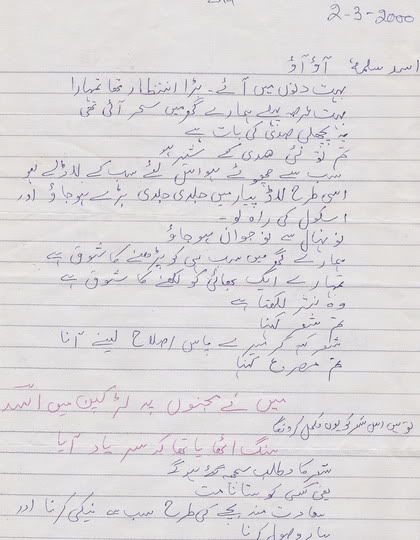 2-3-2000
اسد سلمہ آؤ آؤ
بہت دنوں میں آئے۔ بڑا انتظار تھا تمہارا
بہت عرصہ پہلے ہمارے گھر میں سحر آئی تھی
یہ پچھلی صدی کی بات ہے
تم تو نئی صدی کے شیر ہو
سب سے چھوٹے ہو اس لئے سب کے لاڈلے ہو
اسی طرح لاڈ پیار میں جلدی جلدی بڑے ہو جاؤ اور
اسکول کی راہ لو۔
نونہال سے نوجوان ہو جاؤ
ہمارے گھر میں سب ہی کو پڑھنے کا شوق ہے
تمہارے ایک بھائی کو لکھنے کا شوق ہے
وہ نثر لکھتا ہے
تم شعر کہنا
شعر کہہ کر میرے پاس اصلاح لینے آنا
تم مصرع کہنا
میں نے مجنوں پہ لڑکپن میں اسد
تو میں اس شعر کو یوں مکمل کرونگا
سنگ اٹھایا تھا کہ سر یاد آیا
شعر کا مطلب سمجھ
یہی کسی کو ستانا مت
سعادت مند بچے کی طرح سب سے نیکی کرنا اور
پیار وصول کرنا